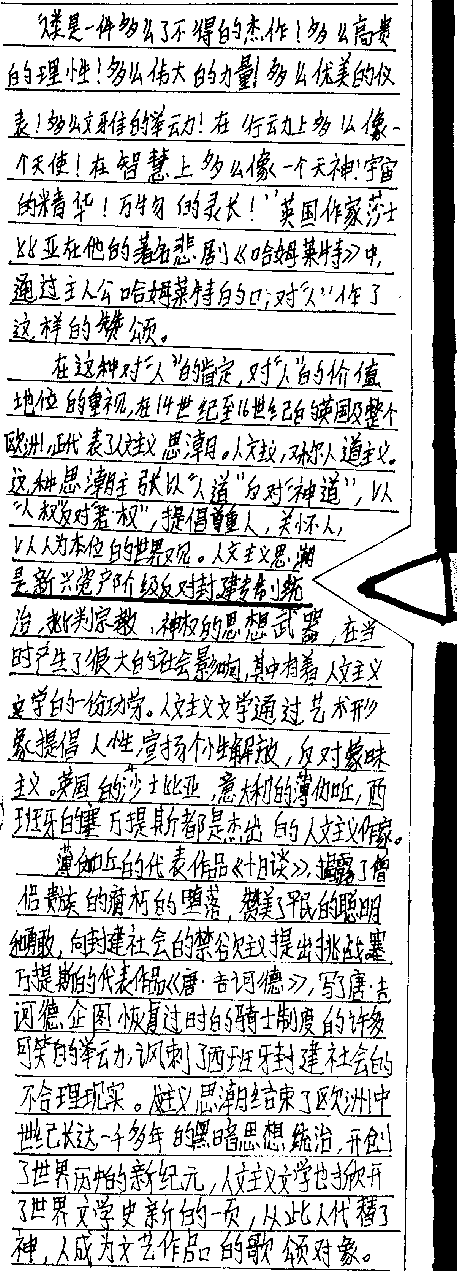 "人类是一件多么了不得的杰作！多么高贵
的理性！多么伟大的力量！多么优美的仪
表！多么文雅的举动！在行动上多么像一
个天使！在智慧上多么像一个天神！宇宙
的精华！万物的灵长！"英国作家莎士
比亚在他的著名悲剧《哈姆莱特》中，
通过主人公哈姆莱特的口，对"人"作了
这样的赞颂。
在这种对"人"的肯定，对"人"的价值
地位的重视，在14世纪至16世纪的英国及整个
欧洲，正代表了人文主义思潮。人文主义，又称人道主义。
这种思潮主张以"人道"反对"神道"，以
"人权"反对"君权"，提倡尊重人，关怀人，
以人为本位的世界观。人文主义思潮
是新兴资产阶级反对封建专制统
治，批判宗教、神权的思想武器，在当
时产生了很大的社会影响，其中有着人文主义
文学的一份功劳。人文主义文学通过艺术形
象提倡人性，宣扬个性解放，反对蒙昧
主义。英国的莎士比亚，意大利的薄伽丘，西
班牙的塞万提斯都是杰出的人文主义作家。
薄伽丘的代表作品《十日谈》，揭露了僧
侣贵族的腐朽的堕落，赞美了平民的聪明
和勇敢，向封建社会的禁欲主义提出挑战。塞
万提斯的代表作品《唐·吉诃德》，写了唐·吉
诃德企图恢复过时的骑士制度的许多
可笑的举动，讽刺了西班牙封建社会的
不合理现实。人文主义思潮结束了欧洲中
世纪长达一千多年的黑暗思想统治，开创
了世界历史的新纪元，人文主义文学也掀开
了世界文学史新的一页，从此人代替了
神，人成为文艺作品的歌颂对象。